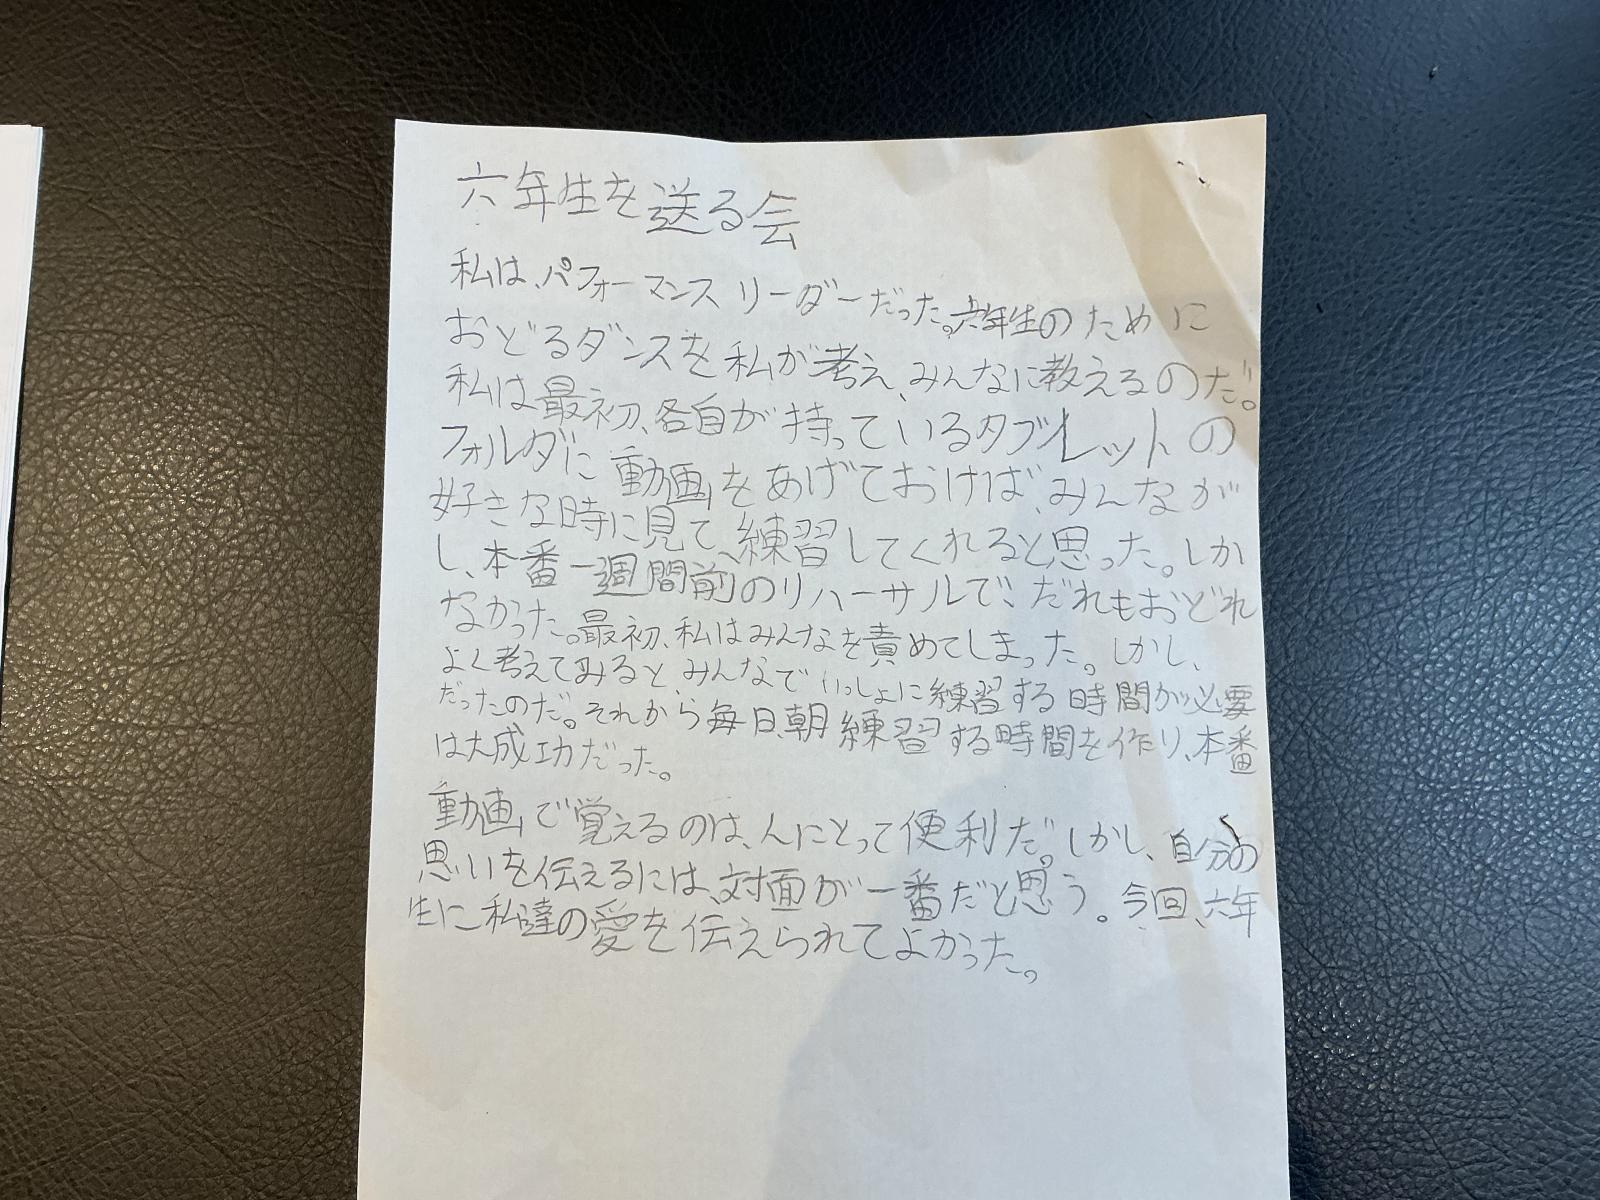 六年生を送る会
私は、パフォーマンスリーダーだった。六年生のために
おどるダンスを私が考え、みんなに教えるのだ。
私は最初、各自が持っているタブレットの
フォルダに動画をあげておけば、みんなが
好きな時に見て、練習してくれると思った。しか
し、本番一週間前のリハーサルで、だれもおどれ
なかった。最初、私はみんなを責めてしまった。しかし、
よく考えてみると、みんなでいっしょに練習する時間が必要
だったのだ。それから毎日、朝練習する時間を作り、本番
は大成功だった。
動画で覚えるのは、人にとって便利だ。しかし、自分の
思いを伝えるには、対面が一番だと思う。今回、六年
生に私達の愛を伝えられてよかった。